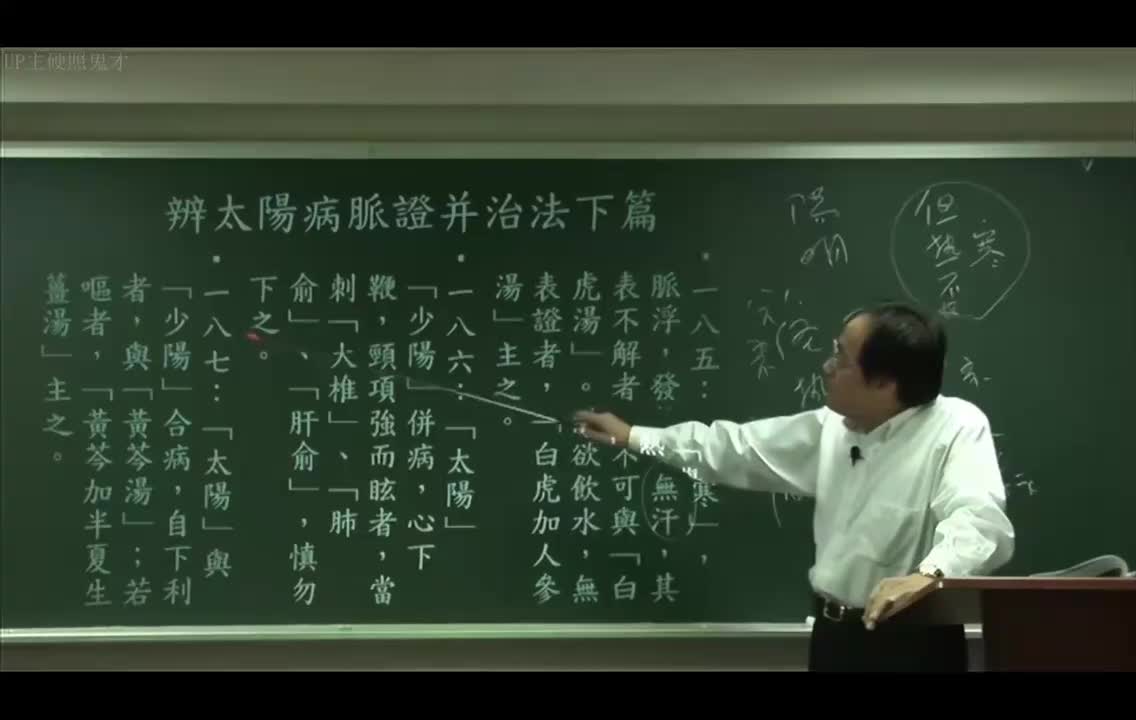 UP主硬照鬼才
辨太陽病脈證并治法下篇
一八五：「寒」，
脈浮，發熱無汗，其
表不解者，不可與「白
虎湯」。欲飲水，無
表證者，「白虎加人參
湯」主之。
一八六：「太陽」
「少陽」併病，心下
鞕，頸項強而眩者，當
刺「大椎」、「肺
俞」、「肝俞」，慎勿
下之。
一八七：「太陽」與
「少陽」合病，自下利
者，與「黃芩湯」；若
嘔者，「黃芩加半夏生
薑湯」主之。
陽明
但熱不
寒